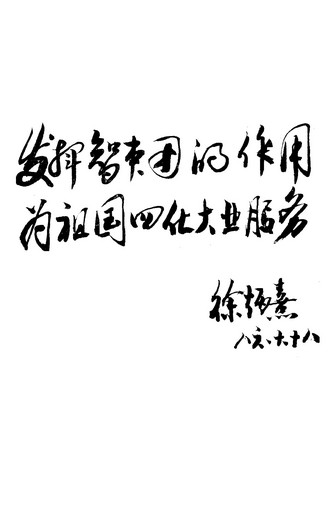 发挥智囊团的作用
为祖国四化大业服务
徐熹
八六.六.十八